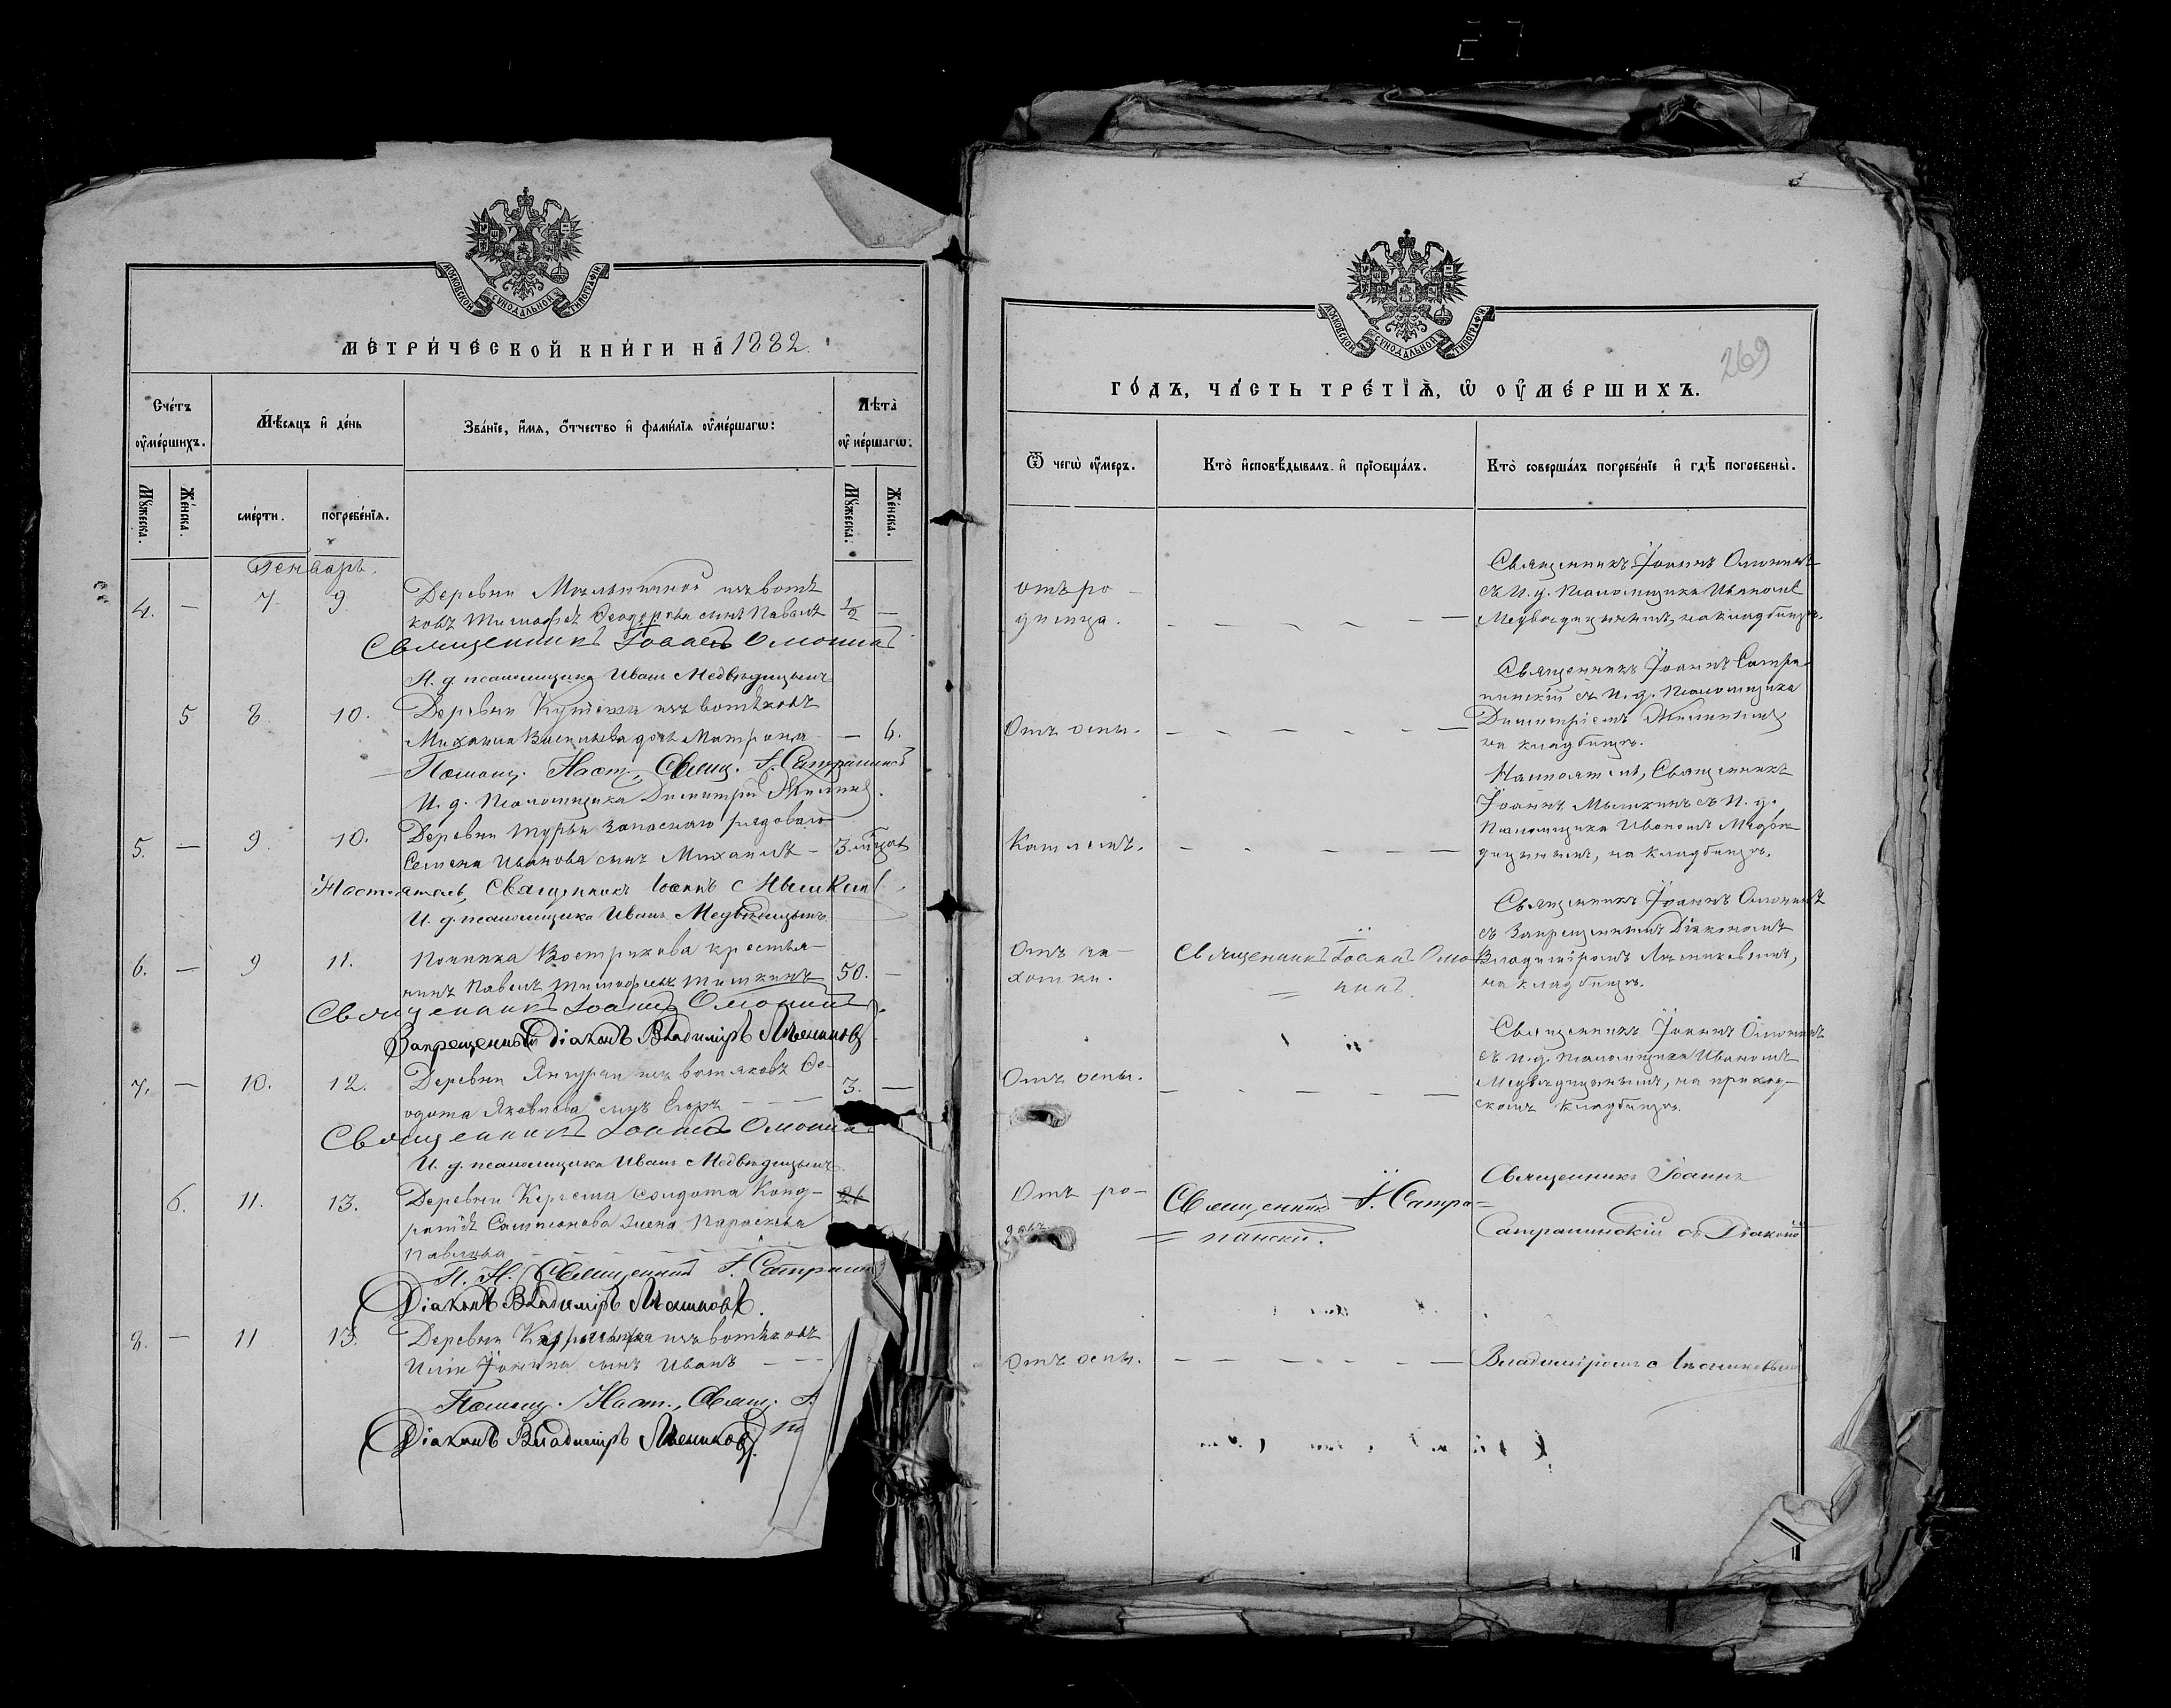 МОСКОВСКОЙ СѴНОДАЛЬНОЙ ТИПОГРАФІИ
МЕТРИ́ЧЕСКОЙ КНИ́ГИ НА̀ 1882.
Сче́тъ ᲂу҆ме́ршихъ.
Мѣ́сяцъ и҆ де́нь
Зва́нїе, и҆́мя, ѻ҆́тчество и҆ фами́лїя ᲂу҆ме́ршагѡ:
Лѣ́та ᲂу҆ме́ршагѡ:
Мꙋ́жеска.
Же́нска.
сме́рти.
погребе́нїя.
Мꙋ́жеска.
Же́нска.
Генварь.
4. — 7 9. Деревни изъ вотя
ковъ Тимофея Ѳеодорова сынъ Павелъ ½ —
Священникъ Іоаннъ Омонинъ
И. д. псаломщика Иванъ Медвѣдицынъ
5 8. 10. Деревни изъ вотяковъ
Михаила Васильева дочь Матрона — 6.
Помощ. Наст., Свящ. І. Сатрапинскій
И. д. псаломщика Димитрій
5. — 9. 10. Деревни Турьи запаснаго рядоваго
Семена Иванова сынъ Михаилъ — 3 мѣсяц.
Настоятель, Священникъ Іоаннъ Мышкинъ
И. д. псаломщика Иванъ Медвѣдицынъ
6. — 9 11. Починка Вострикова крестья-
нинъ Павелъ Тимофеевъ Тишкинъ 50. —
Священникъ Іоаннъ Омонинъ
Запрещенный Діаконъ Владиміръ Лѣсниковъ
7. — 10. 12. Деревни изъ вотяковъ Ѳе-
одота Яковлева сынъ Егоръ — — — 3. —
Священникъ Іоаннъ Омонинъ
И. д. псаломщика Иванъ Медвѣдицынъ
6. 11. 13. Деревни солдата Конд-
ратія жена Параскева
Павлова
П. Н. Священникъ І. Сатрапин
Діаконъ Владиміръ Лѣсниковъ.
8. — 11 13. Деревни изъ вотяковъ
Иліи сынъ Иванъ — — —
Помощ. Наст., Свящ. І.
Діаконъ Владиміръ Лѣсниковъ.
МОСКОВСКОЙ СѴНОДАЛЬНОЙ ТИПОГРАФІИ
269
ГО́ДЪ, ЧА́СТЬ ТРЕ́ТЇѦ, Ѡ҆ ОУ҆МЕ́РШИХЪ.
Ѿ чегѡ̀ ᲂу҆́меръ.
Кто̀ и҆сповѣ́дывалъ и҆ прїѻбща́лъ.
Кто̀ соверша́лъ погребе́нїе и҆ гдѣ̀ погребены̀.
отъ ро-
димца.
Священникъ Іоаннъ Омонинъ
съ И. д. Псаломщика Иваномъ
Медвѣдицынымъ, на кладбищѣ.
Отъ оспы.
Священникъ Іоаннъ Сатра
пинскій съ И. д. Псаломщика
Димитріемъ
на кладбищѣ.
Кашлемъ.
Настоятель, Священникъ
Іоаннъ Мышкинъ съ И. д.
Псаломщика Иваномъ Медвѣ
дицынымъ, на кладбищѣ.
Отъ ча-
хотки.
Священникъ Іоаннъ Омо
нинъ.
Священникъ Іоаннъ Омонинъ
съ Запрещеннымъ Діакономъ
Владиміромъ Лѣсниковымъ,
на кладбищѣ.
Отъ оспы.
Священникъ Іоаннъ Омонинъ
съ И. д. псаломщика Иваномъ
Медвѣдицынымъ, на приход-
скомъ кладбищѣ.
Отъ ро-
довъ
Священникъ І. Сатра-
пинскій.
Священникъ Іоаннъ
Сатрапинскій съ Діакономъ
Отъ оспы.
Владиміромъ Лѣсниковымъ